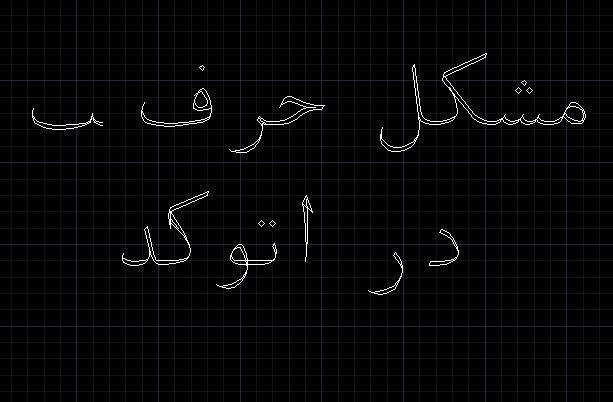 مشکل حرف
در اتوکد